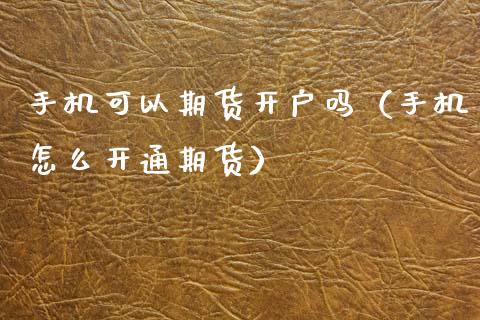 手机可以期货开户吗（手机
怎么开通期货）